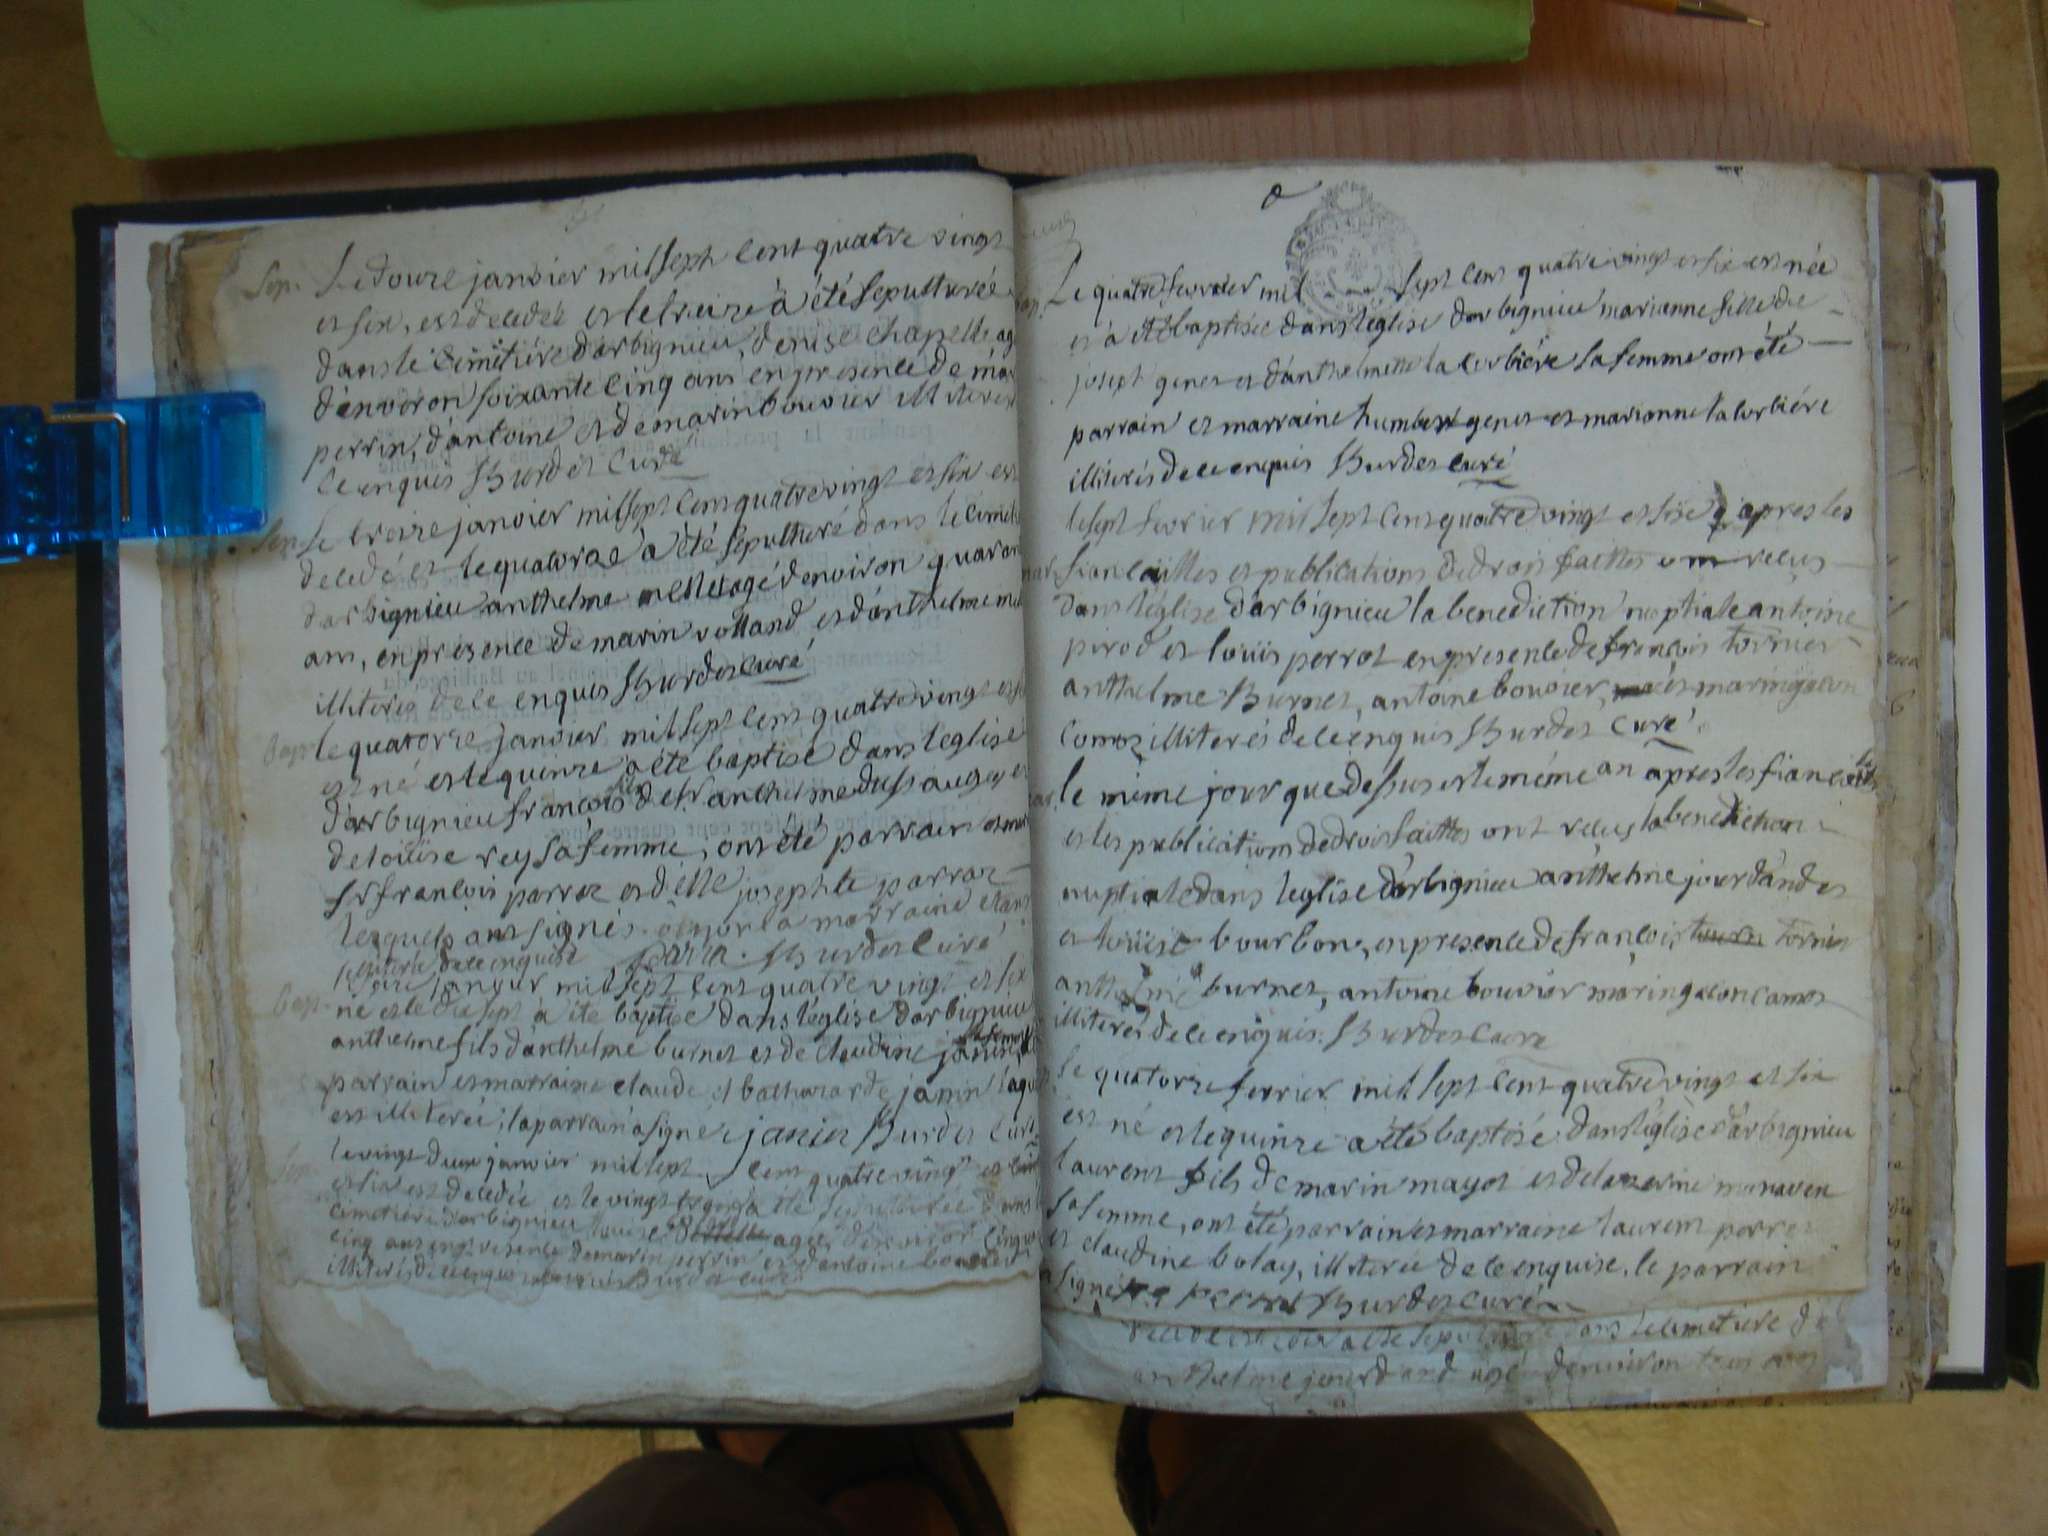 Sep. Le douze janvier mil sept cent quatre vingt
et six, est decedée et le treize à été sepulturée
dans le cimitiére d'arbignieu, denise chapelle ag
d'environ soixante cinq ans en presence de mar
perrin, d'antoine et de marin bouvier illiterés
de ce enquis Burdet curé
Sep. le treize janvier mil sept cent quatre vingt et six est
decedé et le quatorze à été sepulturé dans le cimeti
d'arbignieu anthelme agé d'environ quaran
ans, en presence de marin volland, et d'anthelme
illiterés de ce enquis Burdet curé
Bap. le quatorze janvier mil sept cent quatre vingt et
est né et le quinze a été baptisé dans l'eglise
d'arbignieu francois fils de sr anthelme et
de loüise rey sa femme, ont été parrain et mar
sr francois parraz et delle josephte parraz
lesquels ont signés. la marraine étant
illiterée de ce enquise Burdet curé
janvier mil sept cent quatre vingt et six
Bap. né et le dix sept à été baptisé dans l'église d'arbignieu
anthelme fils d'anthelme burnet et de claudine janin, sa femme
parrain et marraine claude et balthazarde janin laqu
est illiterée; la parrain à signé janin Burdet curé
Sep. le vingt deux janvier mil sept cent quatre vingt et
et six est decedée et le vingt à été sepulturée dans
cimetiére d'arbignieu louise agée d'environ cinq
cinq ans en presence de marin perrin et d'antoine bouvier
illiterés de ce enquis Burdet curé
Le quatre fevrier mil sept cent quatre vingt et six est née
et à été baptisée dans l'eglise d'arbignieu marianne fille de
joseph genet et d'anthelmette la corbiére sa femme ont été
parrain et marraine humbert genet et marianne la corbiére
illiterés de ce enquis Burdet curé
le sept fevrier mil sept cent quatre vingt et six apres les
mar. fiancailles et publications de droit faittes ont recus
dans l'église d'arbignieu la benediction nuptiale antoine
pirod et louïs perrot en presence de francois tornier
anthelme Burnet, antoine bouvier, et marin
illiterés de ce enquis Burdet curé
le méme jour que dessus et le méme an apres les
et les publications de droit faittes ont recus la benediction
nuptiale dans l'eglise d'arbignieu anthelme jourdand et
et loüise bourbon, en presence de francois tornier
anthelme burnet, antoine bouvier marin
illiterés de ce enquis. Burdet curé
le quatorze fevrier mil sept cent quatre vingt et six
est né et le quinze a été baptisé dans l'église d'arbignieu
laurent fils de marin mayot et de
sa femme, ont été parrain et marraine laurent perrot
et claudine bolay, illiterée de ce enquise, le parrain
a signé perrot Burdet curé
à été sepulturé dans le cimetiére d
anthelme jourdand agé d'environ trois ans